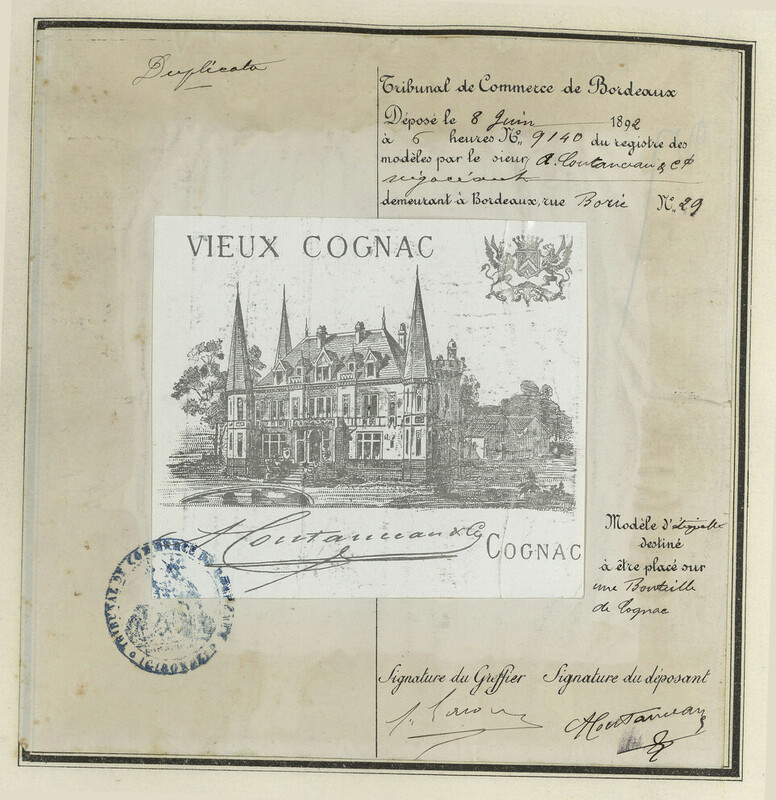 Duplicata
Tribunal de Commerce de Bordeaux
Déposé le 8 Juin 1892
à 6 heures N° 9140 du registre des
modèles par le sieur A. Coutanceau & Cie
négociant
demeurant à Bordeaux, rue Borie N° 29
VIEUX COGNAC
A Coutanceau & Co
COGNAC
Modèle d'étiquette
destiné
à être placé sur
une Bouteille
de Cognac
TRIBUNAL DE COMMERCE DE BORDEAUX
(GIRONDE)
Signature du Greffier Signature du déposant
A Coutanceau